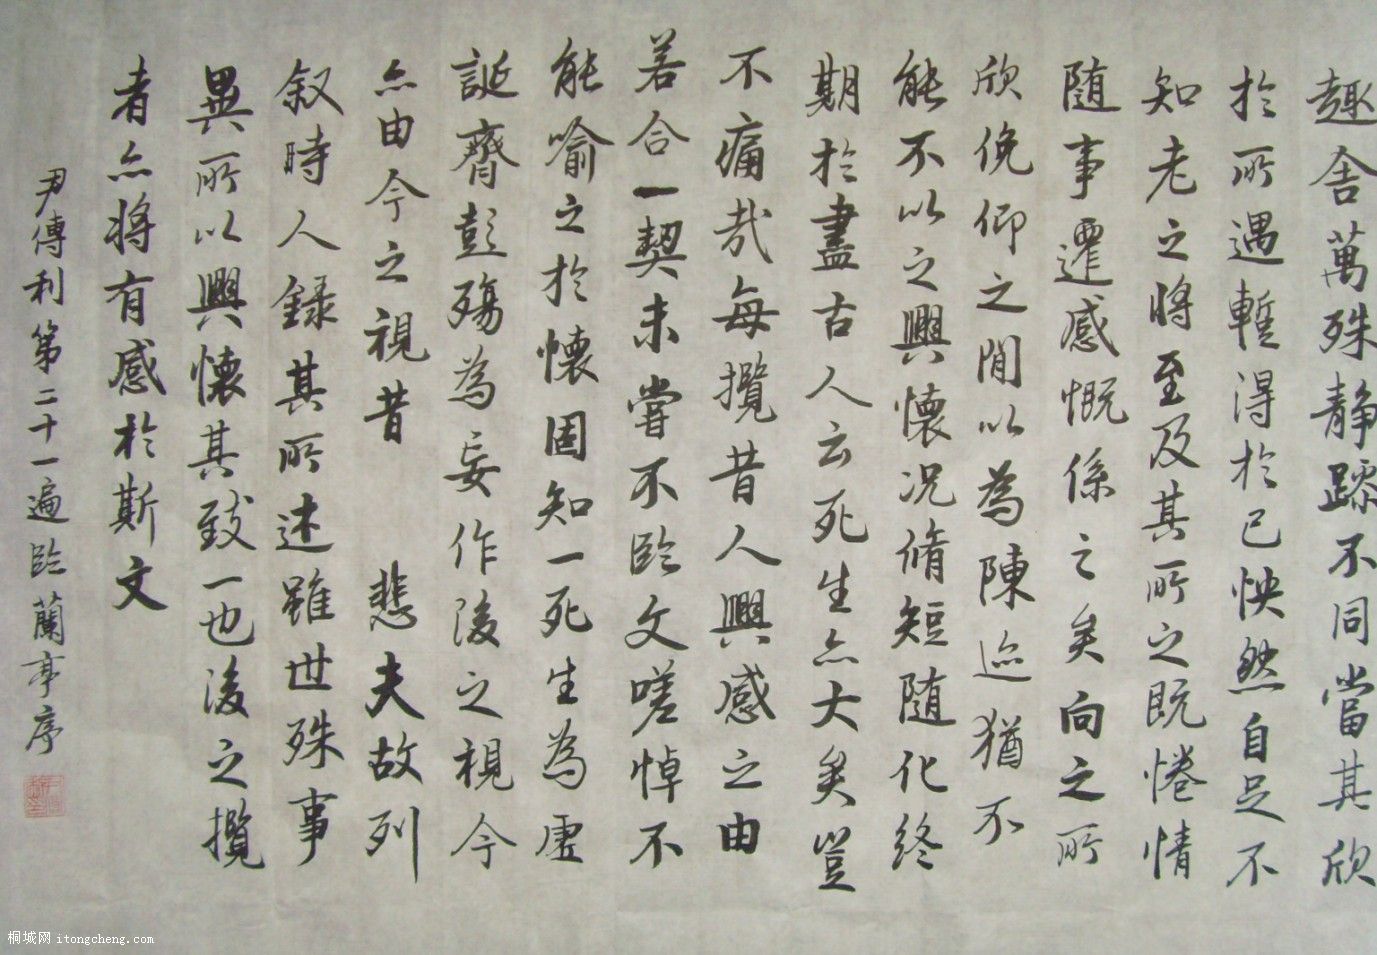 趣舍萬殊静躁不同當其欣
於所遇暫得於己怏然自足不
知老之將至及其所之既惓情
随事遷感慨係之矣向之所
欣俛仰之閒以為陳迹猶不
能不以之興懷况脩短随化終
期於盡古人云死生亦大矣豈
不痛哉每攬昔人興感之由
若合一契未嘗不臨文嗟悼不
能喻之於懷固知一死生為虚
誕齊彭殤為妄作後之視今
亦由今之視昔 悲夫故列
叙時人録其所述雖世殊事
異所以興懷其致一也後之攬
者亦將有感於斯文
尹傳利第二十一遍臨蘭亭序
桐城网 itongcheng.com